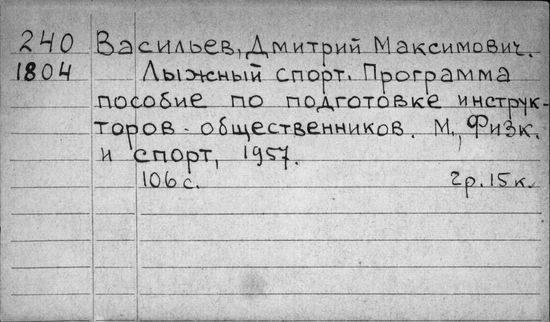 240 Васильев, Дмитрий Максимович.
1804 Лыжный спорт. Программа
пособие по подготовке инструк-
торов-общественников. М., Физк.
и спорт, 1957.
106 с. 2р.15к.